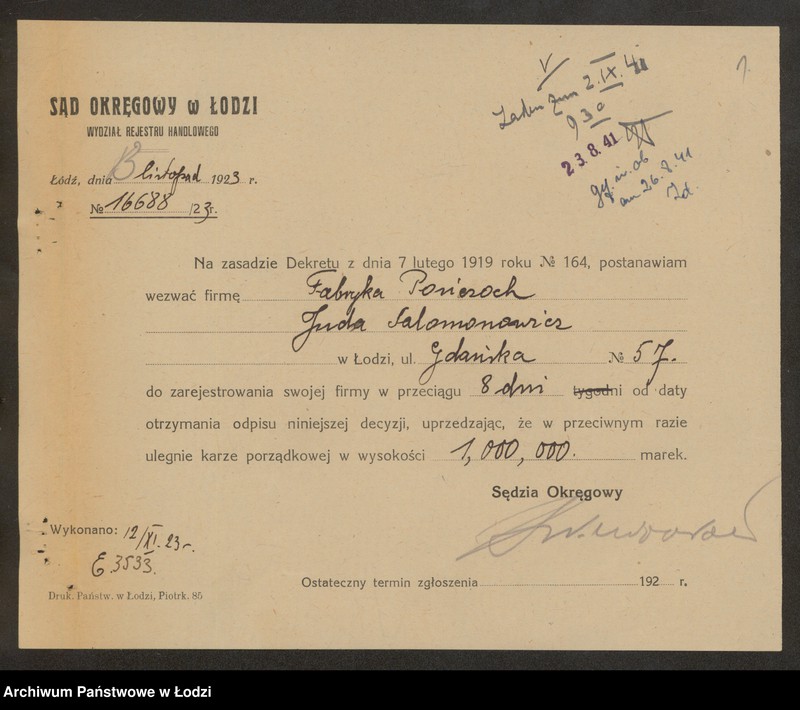 SĄD OKRĘGOWY w ŁODZI
WYDZIAŁ REJESTRU HANDLOWEGO
Łódź, dnia listopad 1923 r.
№ 16688 /23r.
1.
Laden zum 2.IX.41
930
23.8.41
am 26.8.41
Na zasadzie Dekretu z dnia 7 lutego 1919 roku № 164, postanawiam
wezwać firmę Fabryka Pończoch
Juda Salomonowicz
w Łodzi, ul. Gdańska № 57.
do zarejestrowania swojej firmy w przeciągu 8 dni tygodni od daty
otrzymania odpisu niniejszej decyzji, uprzedzając, że w przeciwnym razie
ulegnie karze porządkowej w wysokości 1,000,000. marek.
Sędzia Okręgowy
Wykonano: 12/XI.23r.
E 3533.
Ostateczny termin zgłoszenia 192 r.
Druk. Państw. w Łodzi, Piotrk. 85
Archiwum Państwowe w Łodzi